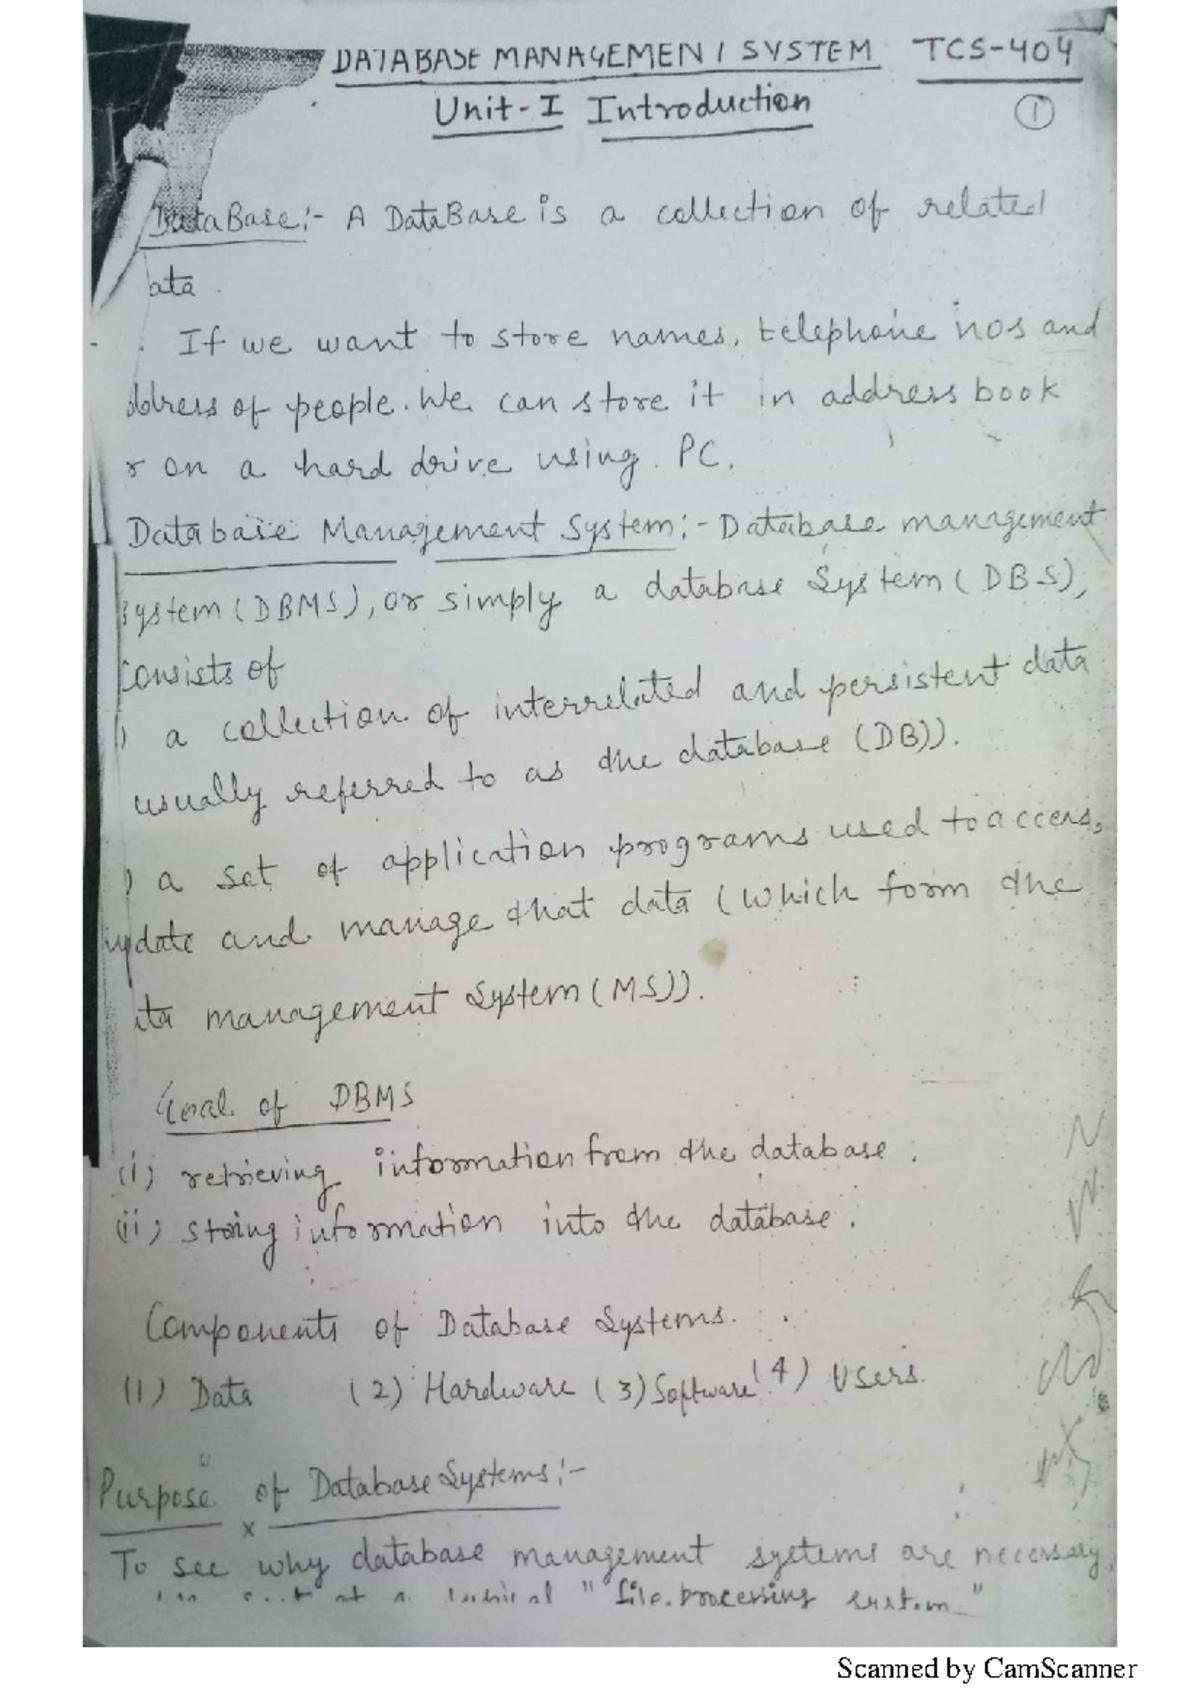 DATABASE MANAGEMENT SYSTEM TCS-404
Unit-I Introduction
1
DataBase:- A DataBase is a collection of related
ata.
If we want to store names, telephone nos and
ddress of people. We can store it in address book
r on a hard drive using PC.
Database Management System:- Database management
system (DBMS), or simply a database System (DBS),
consists of
) a collection of interrelated and persistent data
usually referred to as the database (DB)).
) a set of application programs used to access,
update and manage that data (which form the
ata management System (MS)).
Goal of DBMS
(i) retrieving information from the database.
(ii) storing information into the database.
Components of Database Systems.
(1) Data (2) Hardware (3) Software (4) Users.
Purpose of Database Systems:-
x
To see why database management systems are necessary,
at a typical "file-processing system"
Scanned by CamScanner